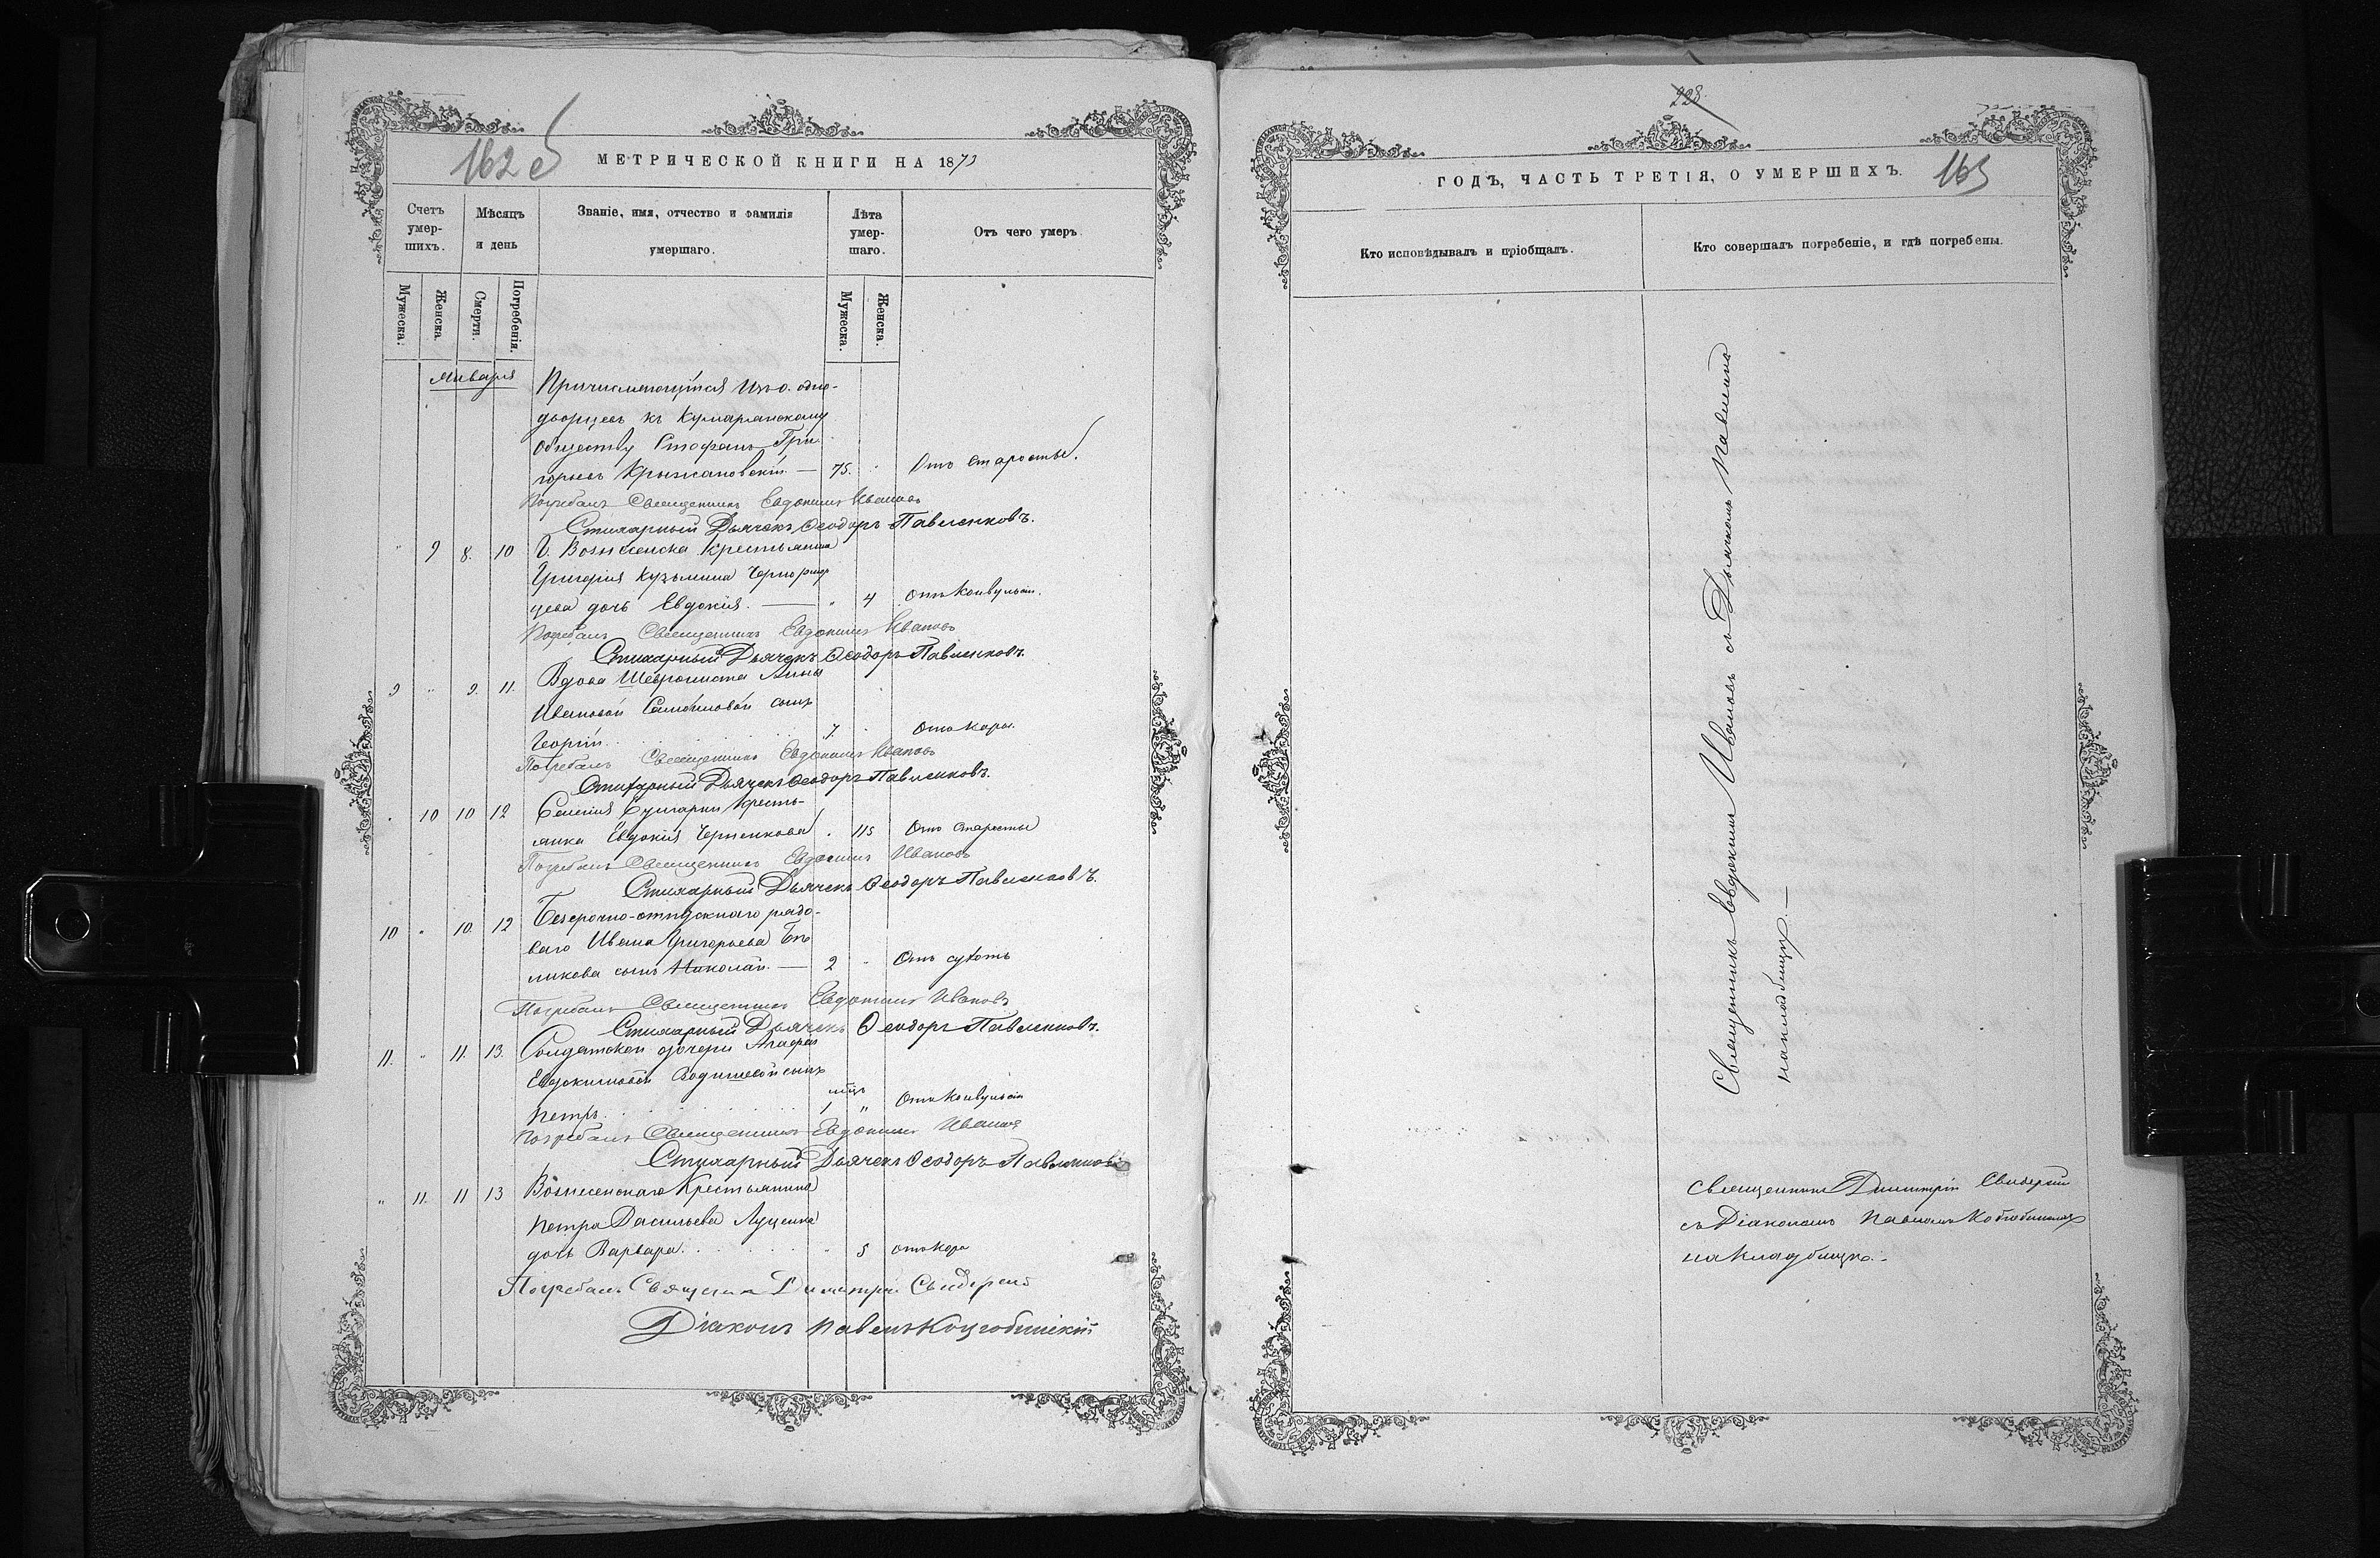 162 об
МЕТРИЧЕСКОЙ КНИГИ НА 1873
Счетъ умер-шихъ.
Мѣсяцъ и день
Званіе, имя, отчество и фамилія умершаго.
Лѣта умер-шаго.
Отъ чего умеръ.
Мужеска.
Женска.
Смерти.
Погребенія.
Мужеска.
Женска.
Января
Причисляющійся изъ одно-
дворцевъ къ
обществу Стефанъ Гри-
горьевъ Крыжановскій — 75. " Отъ старости.
Погребалъ Священникъ Евдокимъ Ивановъ
Стихарный Дьячекъ Ѳеодоръ Павленковъ.
" 9 8. 10 Г. Вознесенска крестьянина
Григорія Кузьмина
цева дочь Евдокія. — " 4 Отъ конвульсіи.
Погребалъ Священникъ Евдокимъ Ивановъ
Стихарный Дьячекъ Ѳеодоръ Павленковъ.
9 " 9. 11. Вдова Анны
Ивановой сынъ
Георгій. 7 " Отъ кори.
Погребалъ Священникъ Евдокимъ Ивановъ
Стихарный Дьячекъ Ѳеодоръ Павленковъ.
" 10 10 12 Селенія Булгарки кресть-
янка Евдокія Черненкова " 115 Отъ старости
Погребалъ Священникъ Евдокимъ Ивановъ
Стихарный Дьячекъ Ѳеодоръ Павленковъ.
10 " 10. 12 Безсрочно-отпускнаго рядо-
ваго Ивана Григорьева Бѣ-
ликова сынъ Николай. — 2 " Отъ сухотъ
Погребалъ Священникъ Евдокимъ Ивановъ
Стихарный Дьячекъ Ѳеодоръ Павленковъ.
11. " 11. 13. Солдатской дочери Агафіи
Евдокимовой сынъ
Петръ. мѣц. 1 " Отъ конвульсіи
Погребалъ Священникъ Евдокимъ Ивановъ
Стихарный Дьячекъ Ѳеодоръ Павленковъ
" 11. 11 13 Вознесенскаго крестьянина
Петра Васильева Луценка
дочь Варвара. " 5 отъ кори
Погребалъ Священникъ Димитрій
Діаконъ Павелъ
228
ГОДЪ, ЧАСТЬ ТРЕТІЯ, О УМЕРШИХЪ.
163
Кто исповѣдывалъ и пріобщалъ.
Кто совершалъ погребеніе, и гдѣ погребены.
Священникъ Евдокимъ Ивановъ съ Дьячкомъ
на кладбищѣ. —
Священникъ Димитрій
съ Діакономъ Павломъ
на кладбищѣ.